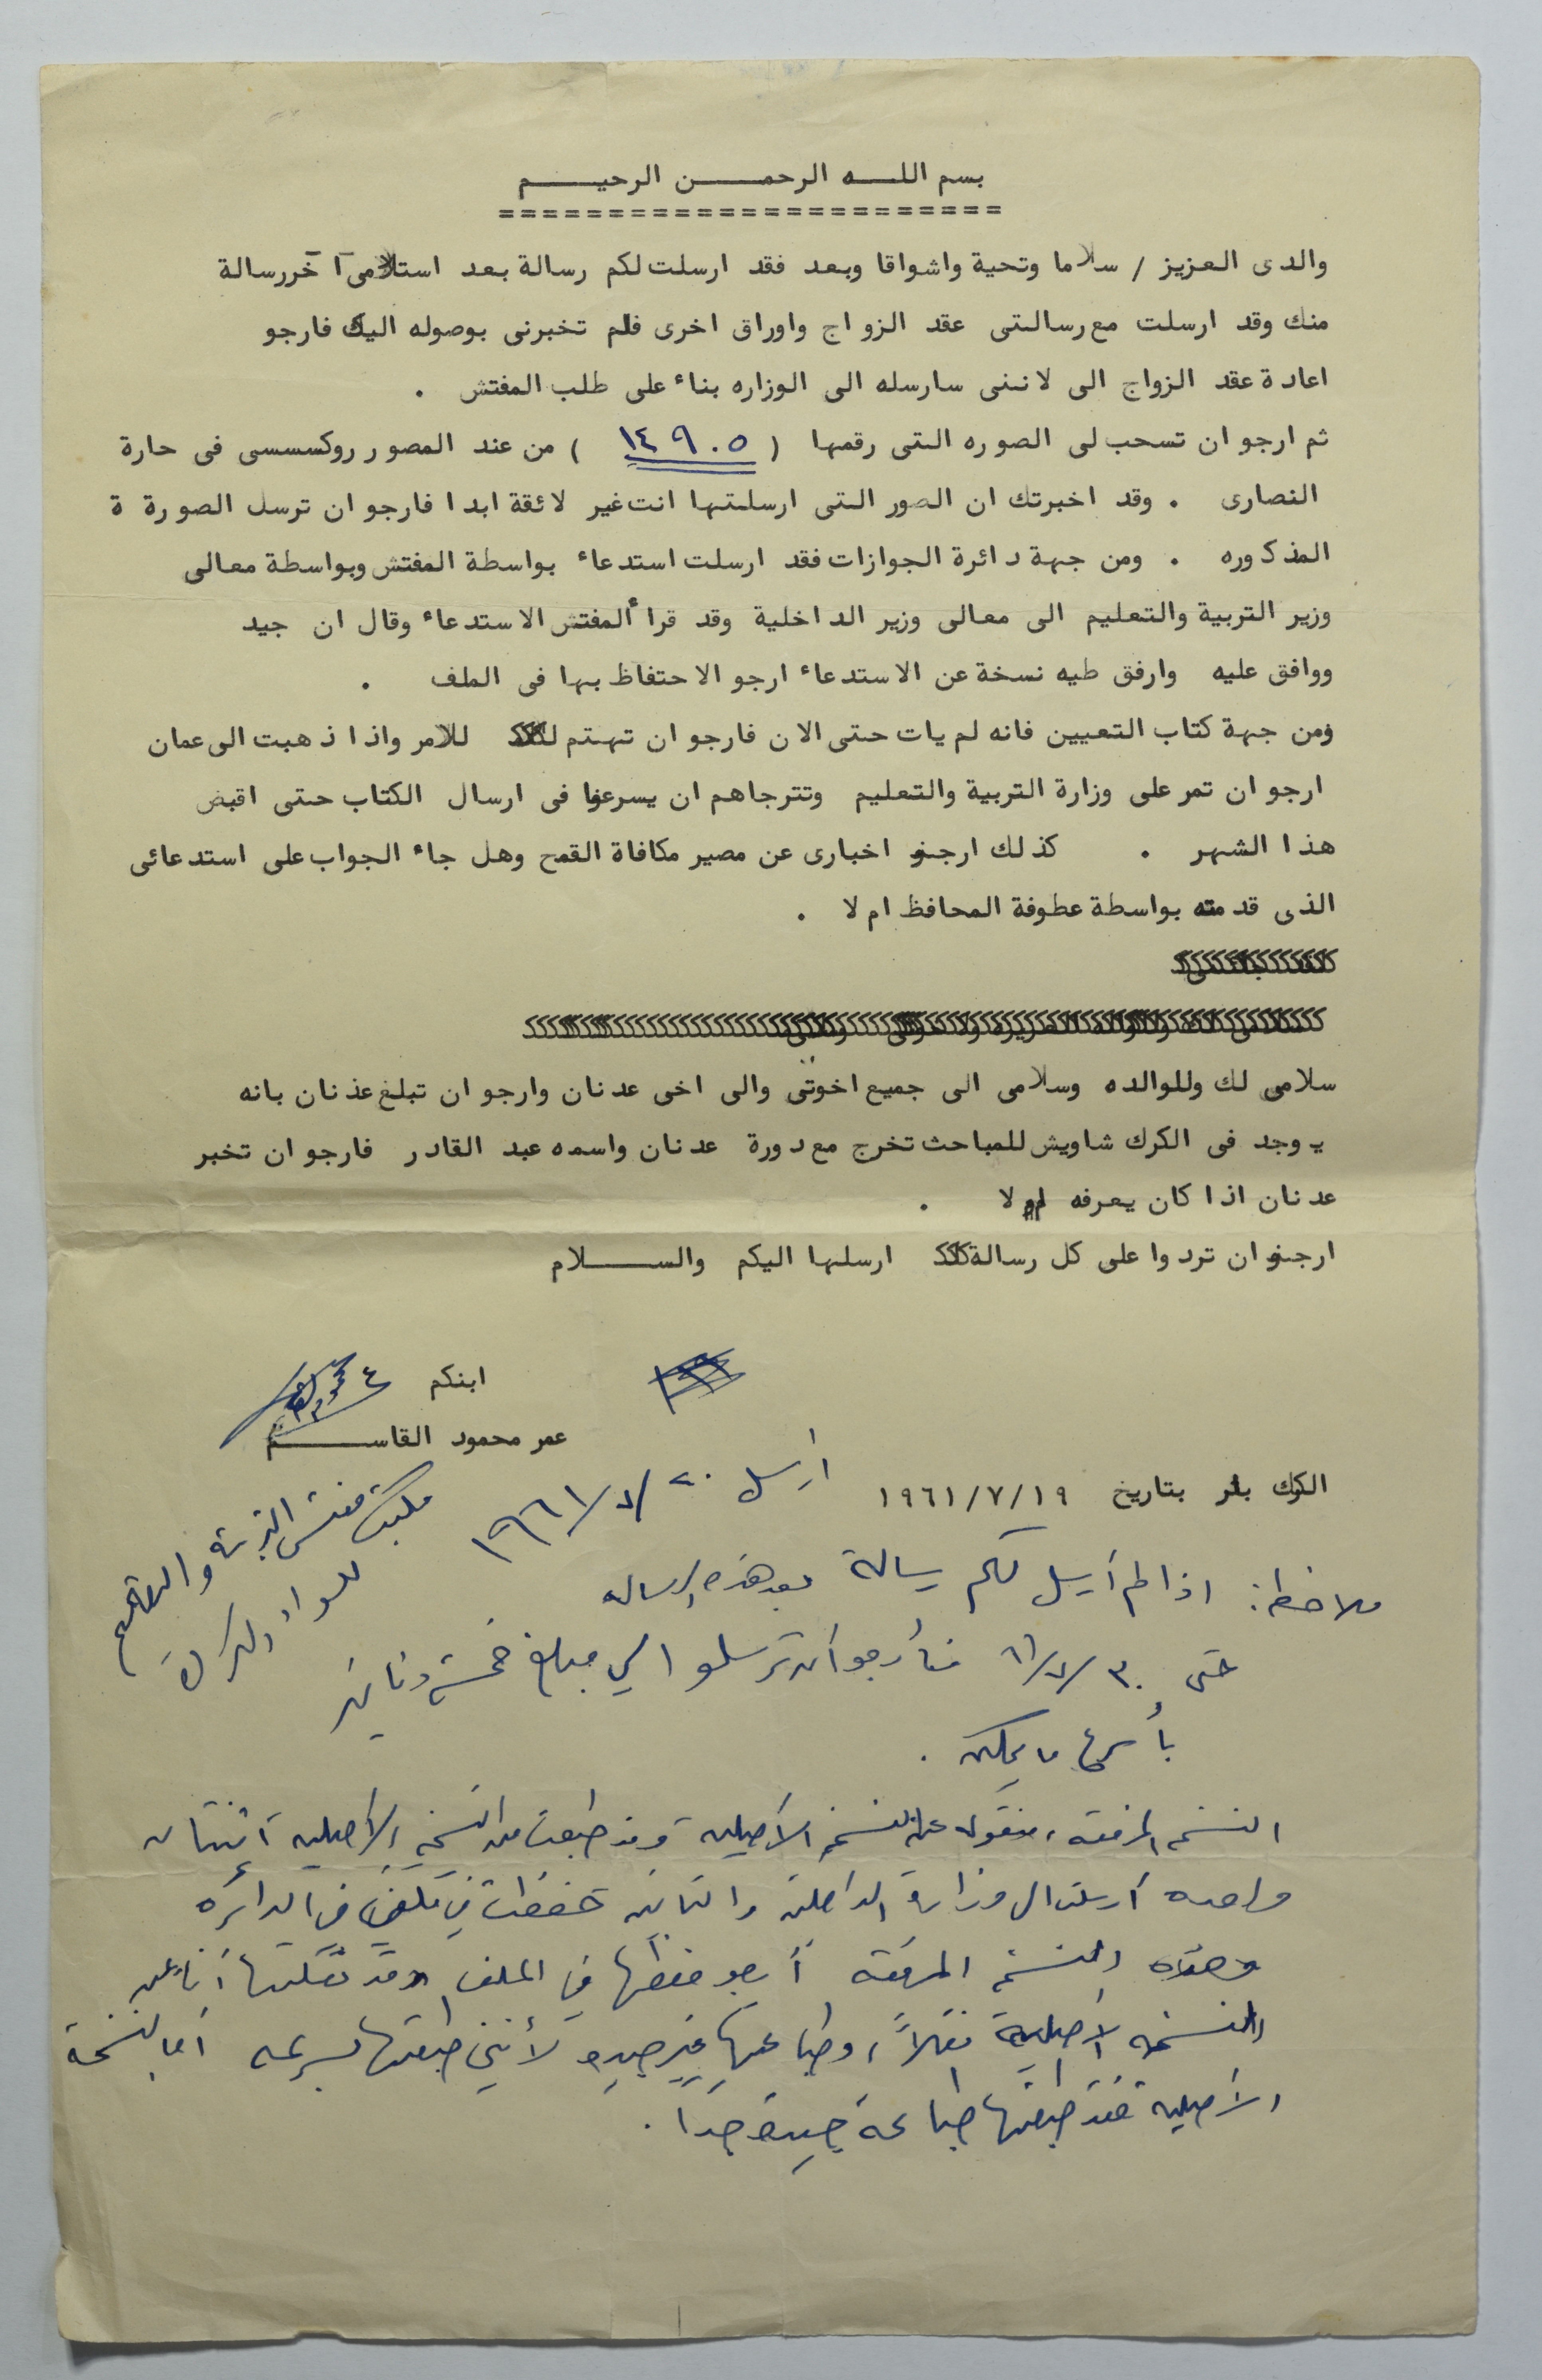 بسم اللـــه الرحمـــــن الرحيـــــم
========================
والدى العزيز / سلاما وتحية واشواقا وبعد فقد ارسلت لكم رسالة بعد استلامى آ خررسالة
منك وقد ارسلت مع رسالتى عقد الزواج واوراق اخرى فلم تخبرنى بوصوله اليك فارجو
اعادة عقد الزواج الى لاننى سارسله الى الوزاره بناء على طلب المفتش .
ثم ارجو ان تسحب لى الصوره التى رقمها ( ١٤٩٠٥ ) من عند المصور روكسسسى فى حارة
النصارى . وقد اخبرتك ان الصور التى ارسلتها انت غير لائقة ابدا فارجو ان ترسل الصورة ة
المذكوره . ومن جهة دائرة الجوازات فقد ارسلت استدعاء بواسطة المفتش وبواسطة معالى
وزير التربية والتعليم الى معالى وزير الداخلية وقد قرا المفتش الاستدعاء وقال ان جيد
ووافق عليه وارفق طيه نسخة عن الاستدعاء ارجو الاحتفاظ بها فى الملف .
ومن جهة كتاب التعيين فانه لم يات حتى الان فارجو ان تهتم للامر واذا ذهبت الى عمان
ارجو ان تمر على وزارة التربية والتعليم وتترجاهم ان يسرعوا فى ارسال الكتاب حتى اقبض
هذا الشهر . كذلك ارجو اخبارى عن مصير مكافاة القمح وهل جاء الجواب على استدعائى
الذى قدمته بواسطة عطوفة المحافظ ام لا .
سلامى لك وللوالده وسلامى الى جميع اخوتى والى اخى عدنان وارجو ان تبلغ عدنان بانه
يوجد فى الكرك شاويش للمباحث تخرج مع دورة عدنان واسمه عبد القادر فارجو ان تخبر
عدنان اذا كان يعرفه ام لا .
ارجو ان تردوا على كل رسالة ارسلها اليكم والســـــلام
ابنكم
عمر محمود القاســـــم
الكرك بتاريخ ١٩٦١/٧/١٩
أرسل ٢٠/٧/١٩٦١
مكتب مفتش التربية والتعليم
للواء الكرك
ملاحظة: اذا لم أرسل لكم رسالة بعد هذه الرساله
حتى ٣٠/٧/٦١ فأرجو أن ترسلوا لي مبلغ خمسة دنانير
بأسرع ما يمكن .
النسخه المرفقه، منقوله عن النسخه الأصليه وقد طبعت من النسخه الأصليه اثنتان
واحده أرسلت الى وزارة الداخلية والثانيه حفظت في ملفي في الدائره
وهذه النسخه المرفقة أرجو حفظها في الملف وقد نقلتها أنا عن
النسخه الأصلية نقلاً، وطباعتها غير جيده لأنني طبعتها بسرعه أما النسخة
الأصليه فقد طبعتها طباعة جيدة جداً .